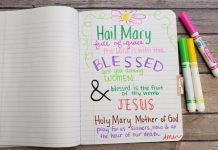 Hail Mary
full of grace
the Lord is with thee
BLESSED
are you among
women...
& blessed is the fruit
of thy womb
JESUS
Holy Mary Mother of God
pray for us sinners, now & at
the hour of our death.
Amen